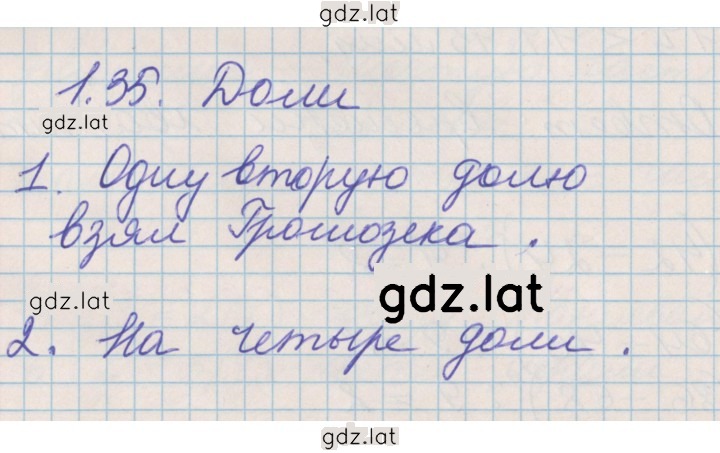 gdz.lat
1.35. Доли
gdz.lat
1. Одну вторую долю
взял Громозека.
gdz.lat
gdz.lat
2. На четыре доли.
gdz.lat